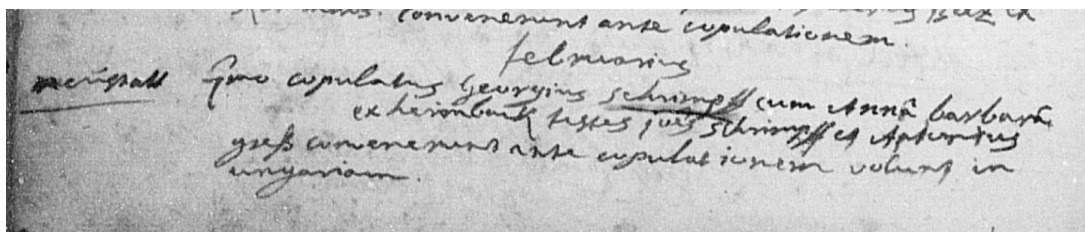 convenerunt ante copulationem.
februarius
copulatus Georgius schrimpff cum Annâ barbarâ
ex testes schrimpff et Antonius
greß convenerunt ante copulationem volunt in
ungariam.